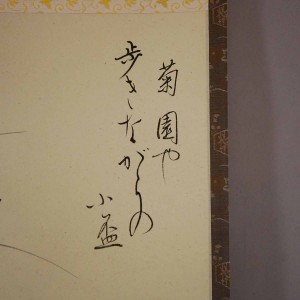 菊園や
歩きながらの
小盃